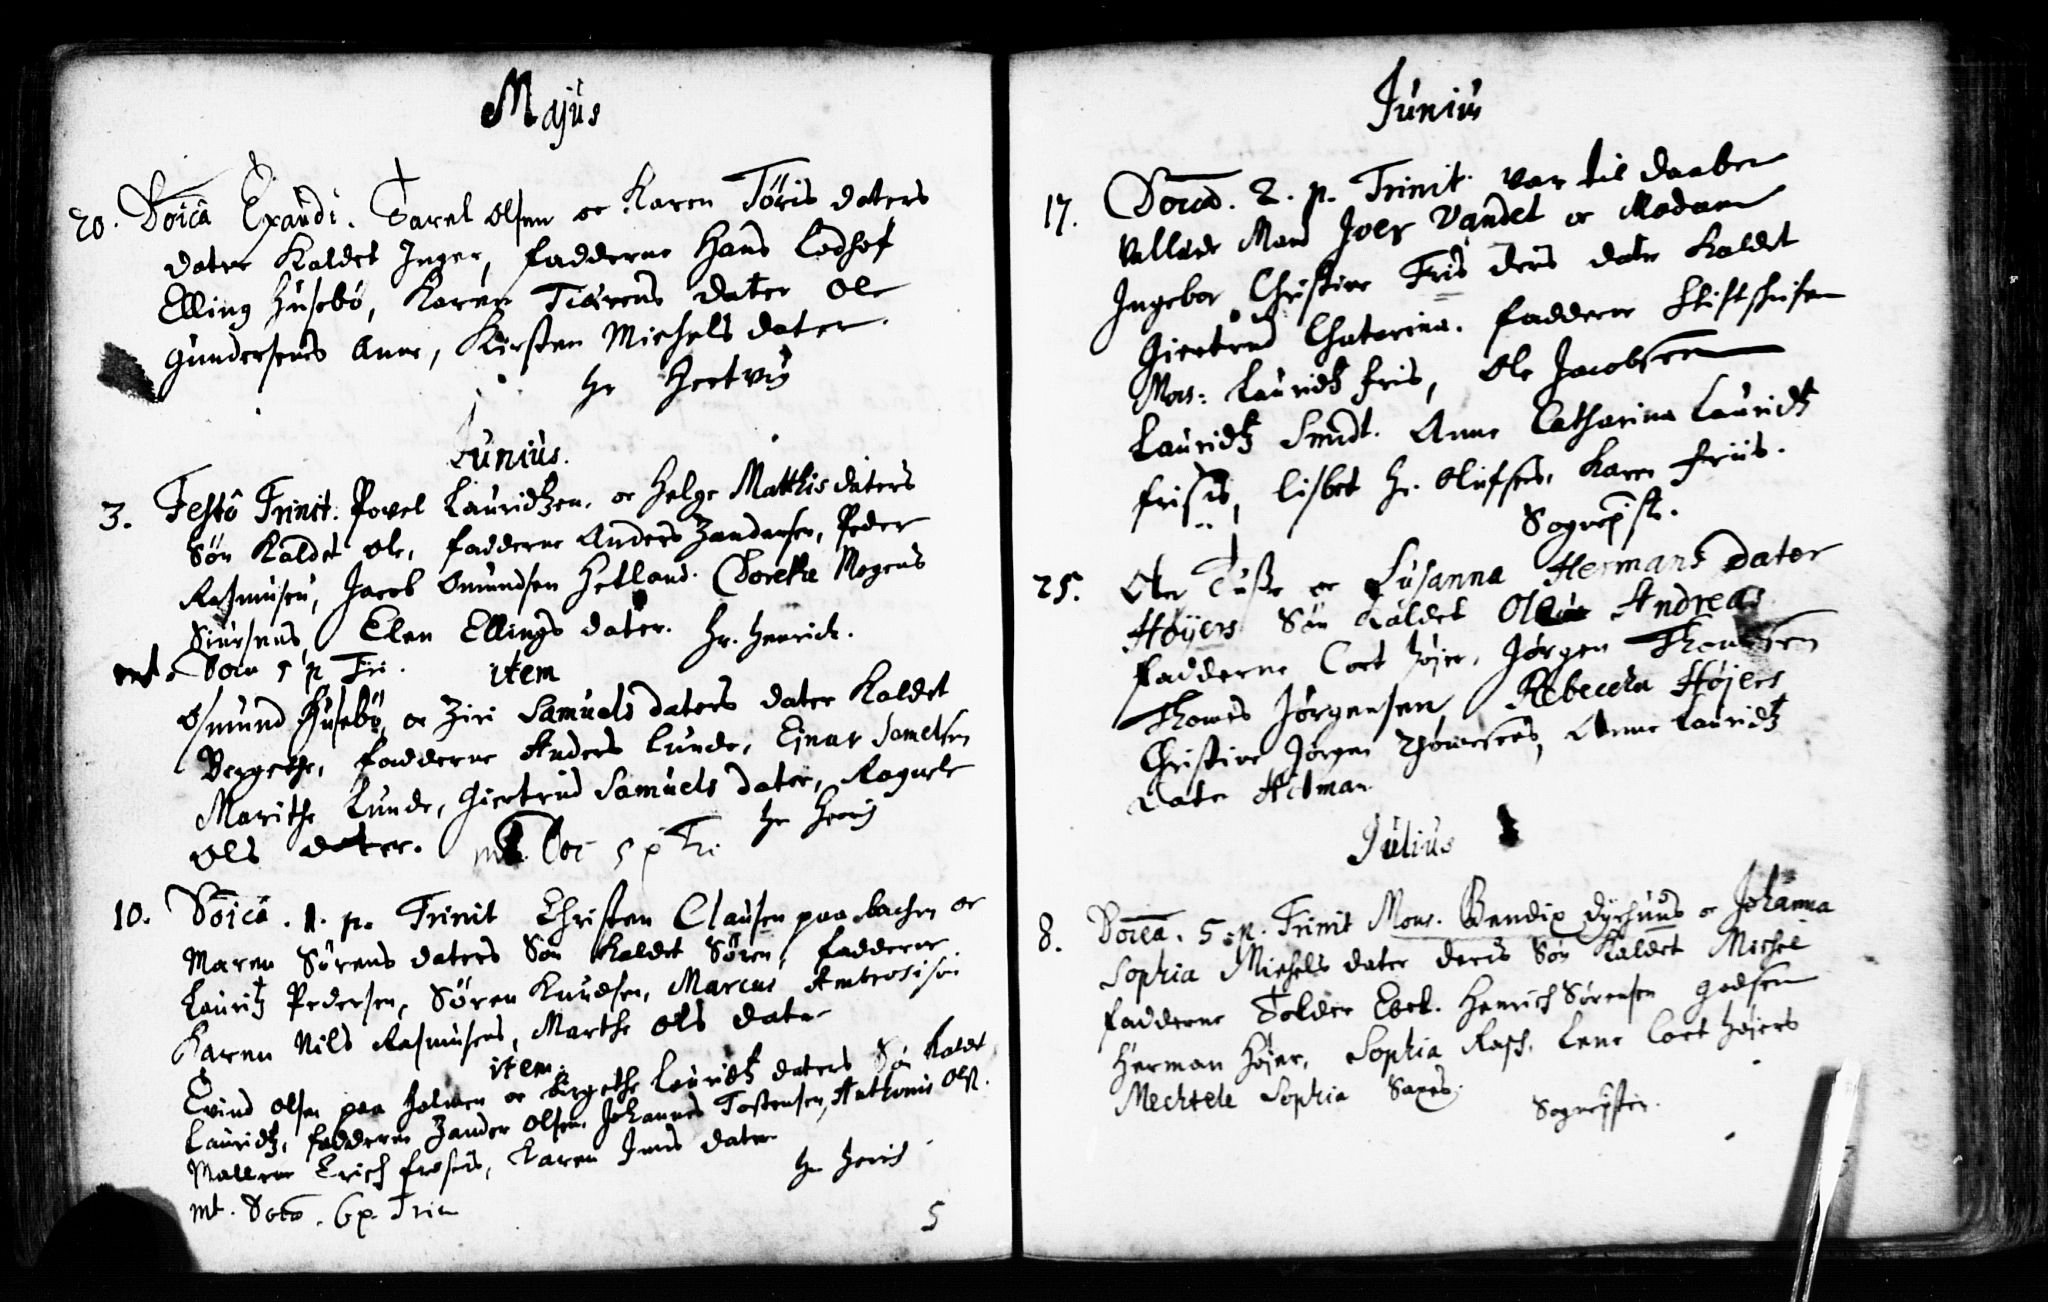 Majus
20. Doîcâ Exaudi. Tarel Olsen oc Karen Töris daters
dater Kaldet Inger, fadderne Hans Lodhof
Elling Husebö, Karen Tiörens dater Ole
Gundersens Anne, Kirsten Michels dater.
Hr Hertvig
Junius.
3. Festô Trinit. Povel Lauridtzen, oc Helge Matthisdaters
Sön Kaldet Ole, fadderne Anders Zandersen, Peder
Rasmusen, Jacob Omundsen Hetland. Dorethe Mogens
Siursens, Elen Ellings dater. Hr. Henrich.
mt. Doca 5 p Tri. item
Osmund Husebö, oc Ziri Samuels daters dater Kaldet
Bergethe, fadderne Anders Lunde, Ejnar Samelsen
Marithe Lunde, Giertrud Samuels dater, Ragnele
Ols dater. Hr Henrich
mt. Doc 5 p Tri.
10. Doîcâ. 1. p. Trinit Christen Clausen paa bachen oc
Maren Sörens daters Sön Kaldet Sören, fadderne
Lauritz Pedersen, Sören Knudsen, Marcus Ambrosisön
Karen Nils Rasmusens, Marthe Ols dater
item.
Evind Olsen paa Holmen oc birgethe Lauridtz daters Sön Kaldt
Lauridtz, fadderne Zander Olsen, Johannes Tostensen, Anthonis Ols.
Mallene Erich frosts, Karen Jens dater
Hr Henrich
mt. Doca. 6 p. Trin
5
Junius
17. Doicâ. 2. p. Trinit. var til daaben
Vellærde Mand Joer Vandel oc Madam
Ingebor Christine Friis ders dater Kaldet
Giertrud Chatarina. fadderne Stiftskrifven
Mons: Lauridtz friis, Ole Jacobsen
Lauridtz Smidt. Anne Catharina Lauridtz
friises, Lisbet Hr. Olufses, Karen friis.
Sognepst.
25. Oler Tuße oc Susanna Hermans dater
Höyers Sön Kaldet Oluf Andreas
fadderne Cort Höjer, Jörgen Thomesen
Thomes Jörgensen, Rebeccha Höjers
Christine Jörgen Thomesens, Anne Lauridtz
dater Hitman
Julius
8. Doîcâ. 5. p. Trinit Mons. Bendix Dychuus oc Johanna
Sophia Michels dater deris Sön Kaldet Michel
fadderne Tolder Ebel. Henrich Sörensen Godsen
Herman Höjer, Sophia Rasch. Lene Cort Höjers
Mechtele Sophia Saxes.
Sognepster.